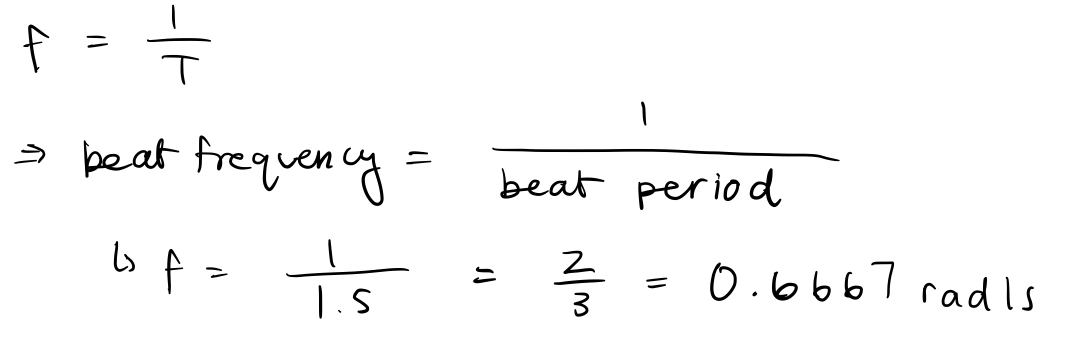 f = 1/T
⇒ beat frequency = 1/beat period
↳ f = 1/1.5 = 2/3 = 0.6667 rad/s